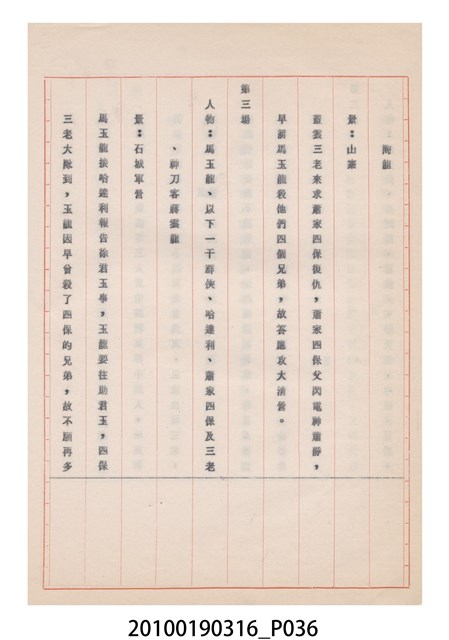 海龍
景：山寨
雲三老來求蕭家四保復仇，蕭家四保父閃電神蕭靜，
早馬玉龍殺他們四個兄弟，故答應攻大清營。
第三場
人物：馬玉龍、以下一干群俠、哈達利、蕭家四保及三老
、神刀客蔣雲龍
景：石城軍營
馬玉龍接哈達利報告徐君玉事，玉龍要往助君玉，四保
三老大隊到，玉龍因早曾殺了四保的兄弟，故不願再多
20100190316_P036